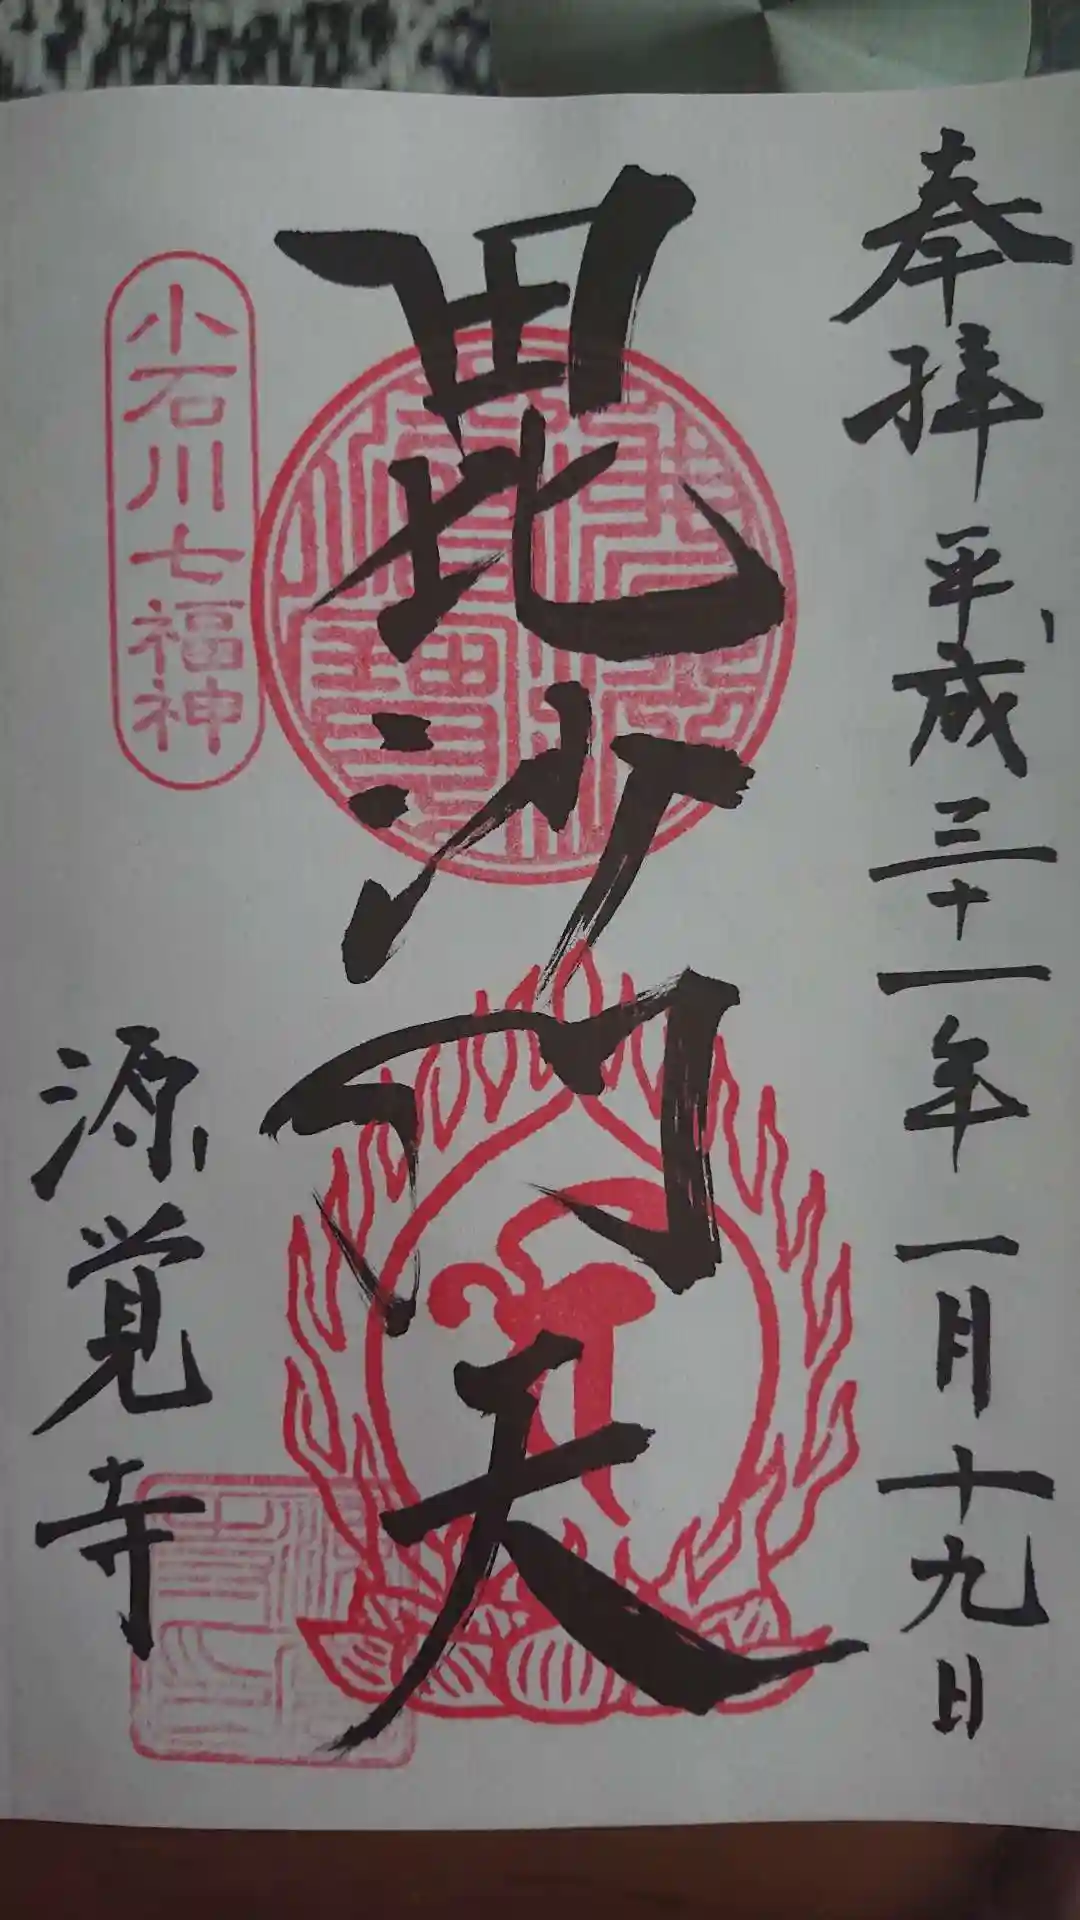 奉拝 平成三十一年一月十九日
毘沙門天
小石川七福神
源覚寺